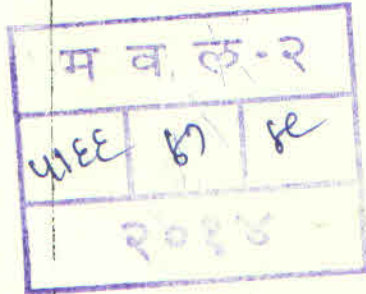 म व ल-२
५१६६ ४९
२०१४